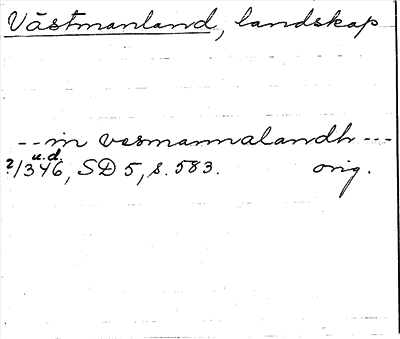 Västmanland, landskap
--in vesmannalandh---
u.d.
?/1346, SD 5, s. 583. orig.